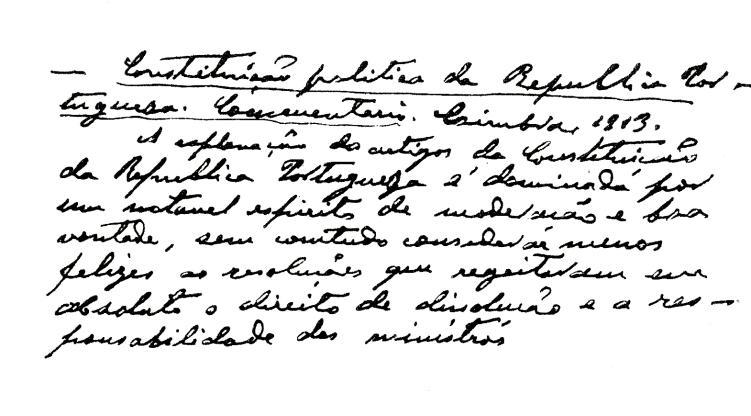 — Constituição politica da Republica Por-
tugueza. Commentario. Coimbra, 1913.
A explanação do artigos da Constituição
da Republica Portugueza é dominada por
um notavel espirito de moderação e boa
vontade, sem comtudo considerar menos
felizes as resoluções que regeitavam em
absoluto o direito de dissolução e a res-
ponsabilidade dos ministros